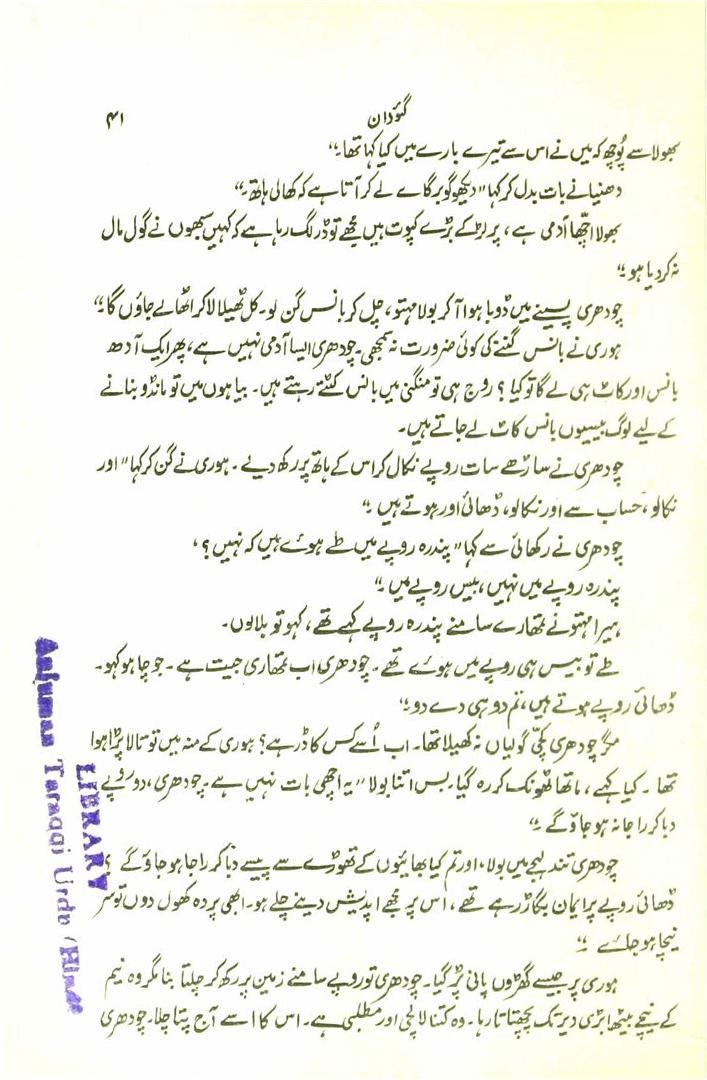 گئودان
۴۱
بھولا سے پوچھ کہ میں نے اس سے تیرے بارے میں کیا کہا تھا۔"
دھنیا نے بات بدل کر کہا "دیکھو گوبر گاے لے کر آتا ہے کہ کھالی ہاتھ۔"
بھولا اچھا آدمی ہے، پر لڑکے بڑے کپوت ہیں مجھے تو ڈر لگ رہا ہے کہ کہیں سبھوں نے گول مال
نہ کر دیا ہو۔"
چودھری پسینے میں ڈوبا ہوا آ کر بولا مہتو، چل کر بانس گن لو۔ کل ٹھیلا لا کر اٹھا لے جاؤں گا۔"
ہوری نے بانس گننے کی کوئی ضرورت نہ سمجھی۔ چودھری ایسا آدمی نہیں ہے، پھر ایک آدھ
بانس اور کاٹ ہی لے گا تو کیا؟ روج ہی تو منگنی میں بانس کٹتے رہتے ہیں۔ بیاہوں میں تو مانڈو بنانے
کے لیے لوگ بیسیوں بانس کاٹ لے جاتے ہیں۔
چودھری نے ساڑھے سات روپے نکال کر اس کے ہاتھ پر رکھ دیے۔ ہوری نے گن کر کہا "اور
نکالو، حساب سے اور نکالو، ڈھائی اور ہوتے ہیں۔"
چودھری نے رکھائی سے کہا "پندرہ روپے میں طے ہوے ہیں کہ نہیں؟،
پندرہ روپے میں نہیں، بیس روپے میں۔"
ہیرا مہتو نے تمھارے سامنے پندرہ روپے کہے تھے، کہو تو بلا لوں۔
طے تو بیس ہی روپے میں ہوے تھے۔ چودھری اب تمھاری جیت ہے۔ جو چاہو کہو۔
ڈھائی روپے ہوتے ہیں، تم دو ہی دے دو۔"
مگر چودھری کچی گولیاں نہ کھیلا تھا۔ اب اُسے کس کا ڈر ہے؟ ہوری کے منہ میں تو تالا پڑا ہوا
تھا۔ کیا کہے، ماتھا ٹھونک کر رہ گیا۔ بس اتنا بولا "یہ اچھی بات نہیں ہے۔ چودھری، دو روپے
دبا کر راجا نہ ہو جاؤگے۔"
چودھری تند لہجے میں بولا، اور تم کیا بھائیوں کے تھوڑے سے پیسے دبا کر راجا ہو جاؤگے؟
ڈھائی روپے پر ایمان بگاڑ رہے تھے، اس پر مجھے اپدیش دینے چلے ہو۔ ابھی پردہ کھول دوں تو سر
نیچا ہو جاے۔"
ہوری پر جیسے گھڑوں پانی پڑ گیا۔ چودھری تو روپے سامنے زمین پر رکھ کر چلتا بنا مگر وہ نیم
کے نیچے بیٹھا بڑی دیر تک پچھتاتا رہا۔ وہ کتنا لالچی اور مطلبی ہے۔ اس کا اسے آج پتا چلا۔ چودھری
LIBRARY
Anjuman Taraqqi Urdu (Hind)